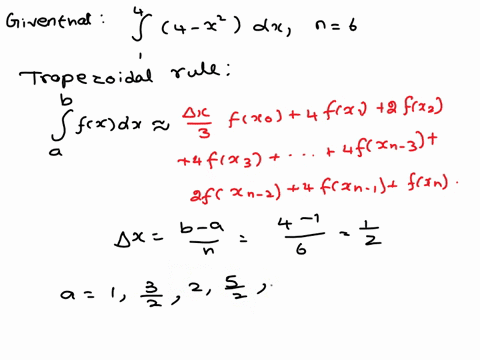 Giventhat: ∫₁⁴ (4-x²) dx, n=6
Tropezoidal rule:
∫ₐᵇ f(x)dx ≈ Δx/3 f(x₀)+4f(x₁)+2f(x₂)
+4f(x₃)+···+4f(xₙ₋₃)+
2f(xₙ₋₂)+4f(xₙ₋₁)+f(xₙ).
Δx = b-a/n = 4-1/6 = 1/2
a = 1, 3/2, 2, 5/2,